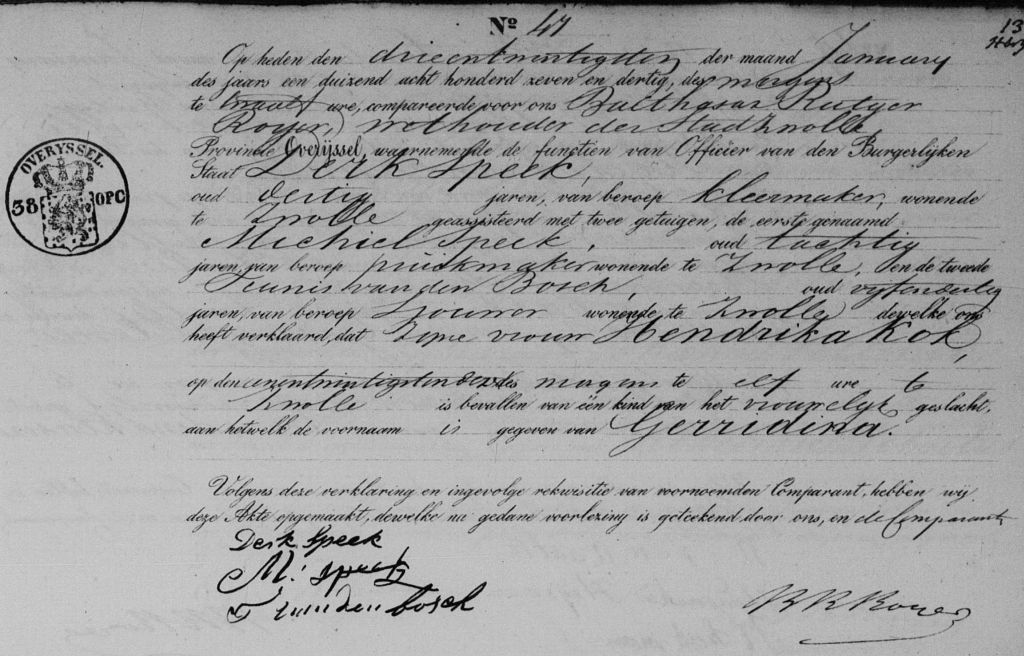 No 47
13
Op heden den drieentwintigsten der maand January
des jaars een duizend acht honderd zeven en dertig, des morgens
te twaalf ure, compareerde voor ons Balthasar Rutger
Royer, wethouder der Stad Zwolle
Provincie Overijssel, waarnemende de functien van Officier van den Burgerlijken
Staat Derk Speek,
oud dertig jaren, van beroep kleermaker, wonende
te Zwolle geassisteerd met twee getuigen, de eerste genaamd
Michiel Speek, oud tachtig
jaren, van beroep pruikmaker wonende te Zwolle, en de tweede
Teunis van den Bosch, oud
jaren, van beroep wonende te Zwolle dewelke ons
heeft verklaard, dat Zyne vrouw Hendrika Kok,
op den eenentwintigsten dezer des morgens te elf ure te
Zwolle is bevallen van één kind van het vrouwelyk geslacht,
aan hetwelk de voornaam is gegeven van Gerridina.
Volgens deze verklaring en ingevolge rekwisitie van voornoemden Comparant, hebben wij
deze Akte opgemaakt, dewelke na gedane voorlezing is geteekend door ons, en de Comparant
Derk Speek
M. Speek
T van den bosch
B R Royer
OVERYSSEL.
38 OPC